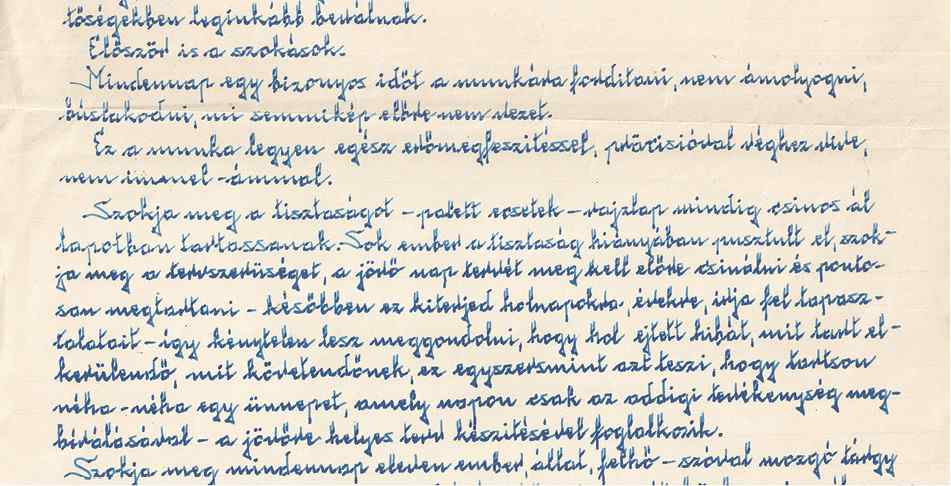 tőségekben leginkább beválnak.
Először is a szokások.
Mindennap egy bizonyos időt a munkára forditani, nem ámolyogni,
búslakodni, mi semmikép előbre nem vezet.
Ez a munka legyen egész erőmegfeszitéssel, präcisióval véghez vive,
nem immel-ámmal.
Szokja meg a tisztaságot – palett ecsetek – rajzlap mindig csinos ál
lapotban tartassanak. Sok ember a tisztaság hiányában pusztult el, szok-
ja meg a tervszerüséget, a jövő nap tervét meg kell előre csinálni és ponto-
san megtartani – későbben ez kiterjed holnapokra, évekre, irja fel tapasz-
talatait – igy kénytelen lesz meggondolni, hogy hol ejtett hibát, mit tart el-
kerülendő, mit követendőnek, ez egyszersmint azt teszi, hogy tartson
néha-néha egy ünnepet, amely napon csak az addigi tevékenység meg-
birálásával – a jövőre helyes terv készitésével foglalkozik.
Szokja meg mindennap eleven ember, állat, felhő – szóval mozgó tárgy